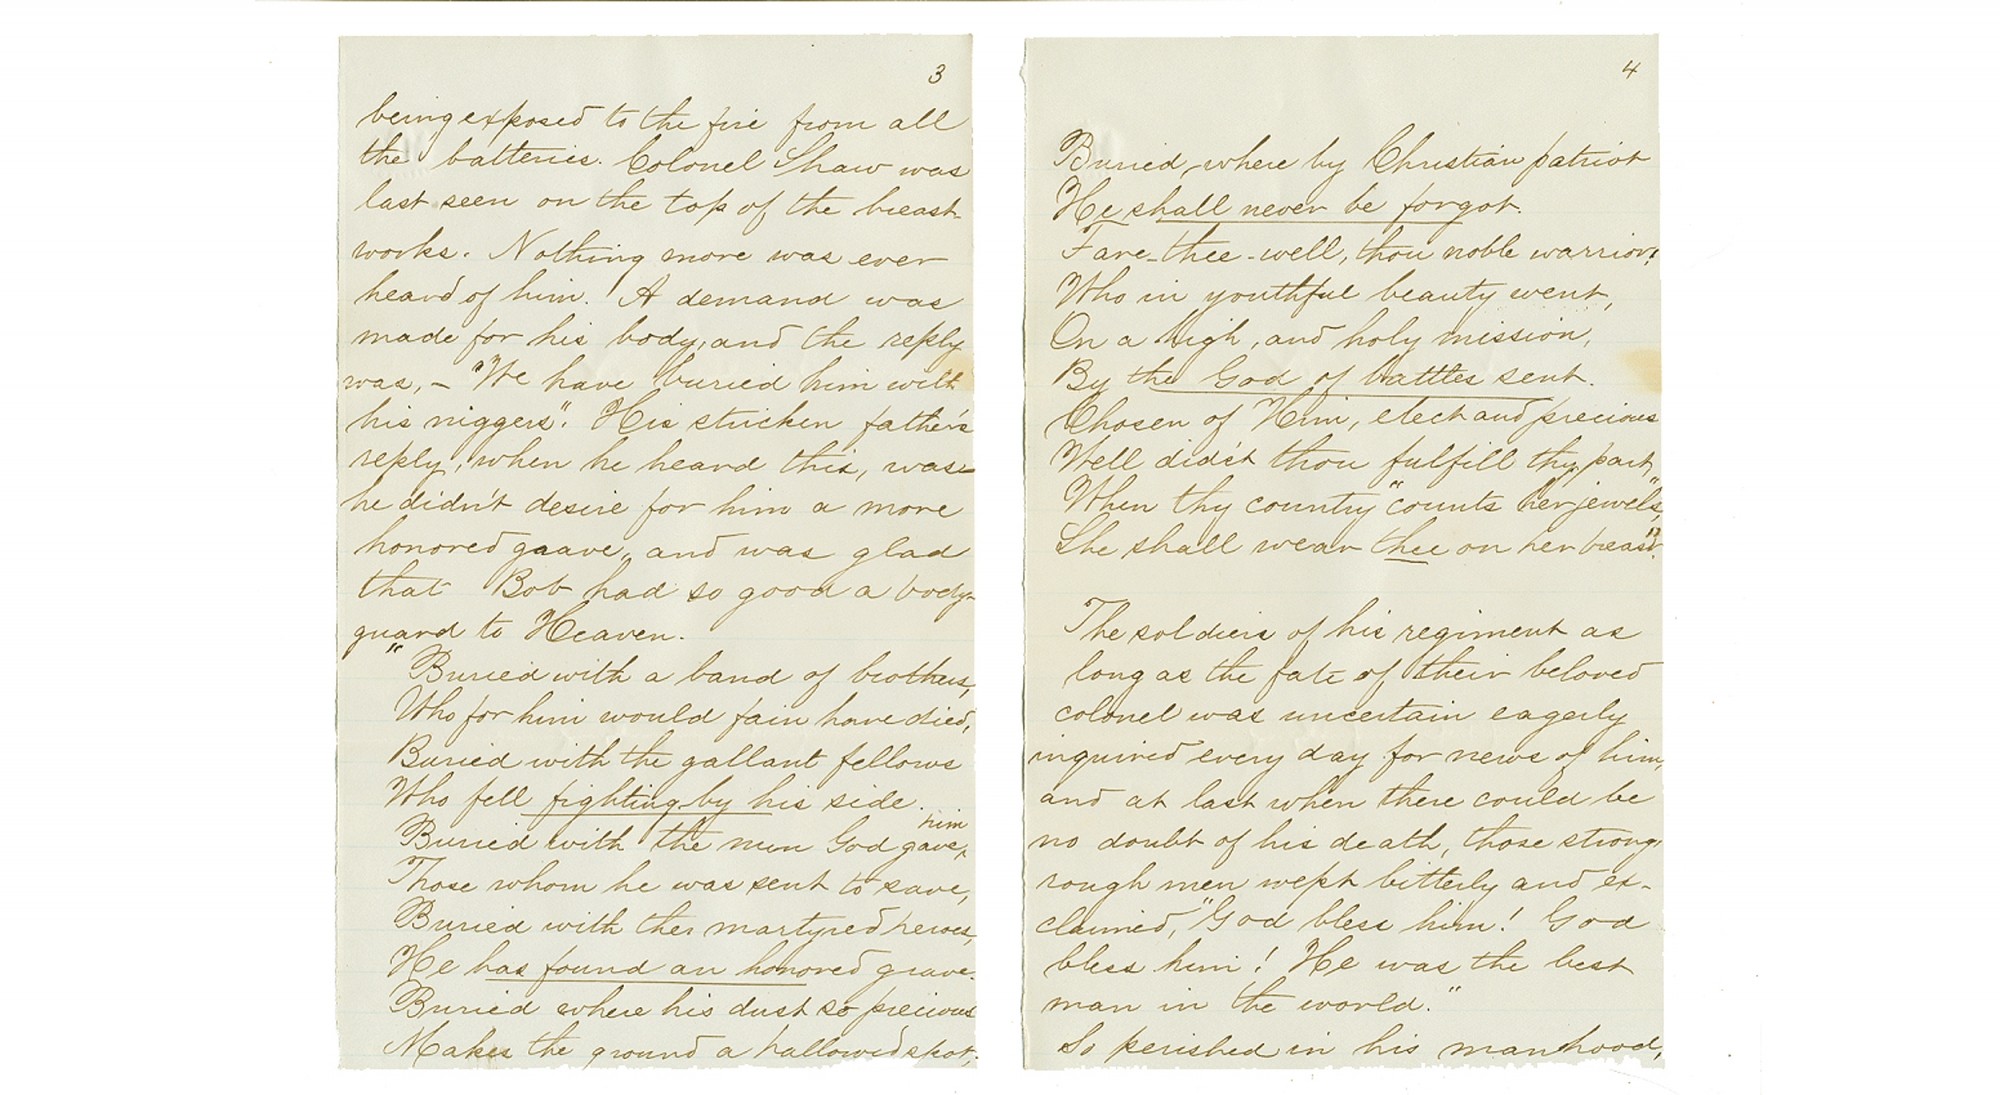 3
being exposed to the fire from all
the batteries. Colonel Shaw was
last seen on the top of the breast
works. Nothing more was ever
heard of him. A demand was
made for his body, and the reply
was, – "We have buried him with
his niggers". His stricken father's
reply, when he heard this, was
he didn't desire for him a more
honored graave, and was glad
that Bob had so good a body-
guard to Heaven.
"Buried with a band of brothers,
Who for him would fain have died,
Buried with the gallant fellows
Who fell fighting by his side.
him
Buried with the men God gave,
Those whom he was sent to save,
Buried with the martyred heroes,
He has found an honored grave.
Buried where his dust so precious
Makes the ground a hallowed spot;
4
Buried, where by Christian patriot
He shall never be forgot.
Fare-thee-well, thou noble warrior!
Who in youthful beauty went,
On a high, and holy mission,
By the God of battles sent.
Chosen of Him, elect and precious
Well did'st thou fulfill thy part,
When thy country "counts her jewels,"
She shall wear thee on her breast."
The soldiers of his regiment as
long as the fate of their beloved
colonel was uncertain eagerly
inquired every day for news of him,
and at last when there could be
no doubt of his death, those strong,
rough men wept bitterly and ex-
claimed, "God bless him! God
bless him! He was the best
man in the world."
So perished in his manhood,